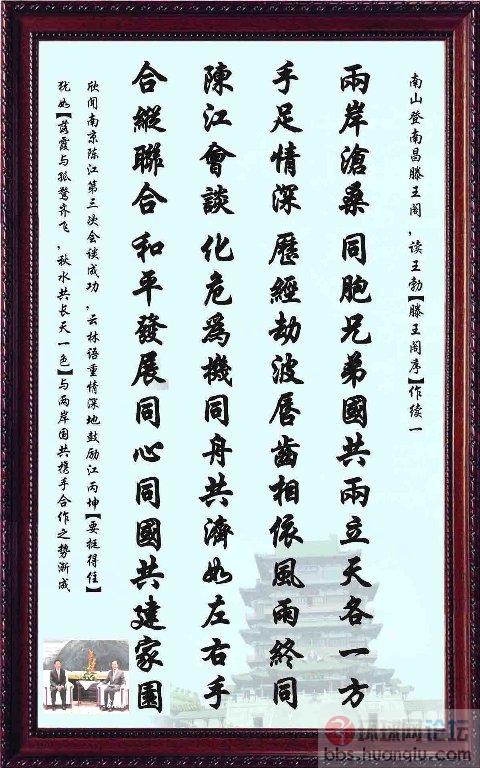 南山登南昌滕王阁，读王勃【滕王阁序】作续一
兩岸滄桑同胞兄弟國共兩立天各一方
手足情深歷經劫波唇齒相依風雨終同
陳江會談化危為機同舟共濟如左右手
合縱聯合和平發展同心同國共建家園
欣闻南京陈江第三次会谈成功，云林语重情深地鼓励江丙坤【要挺得住】
犹如【落霞与孤鹜齐飞，秋水共长天一色】与两岸国共携手合作之势渐成
环球网论坛
bbs.huanqiu.com